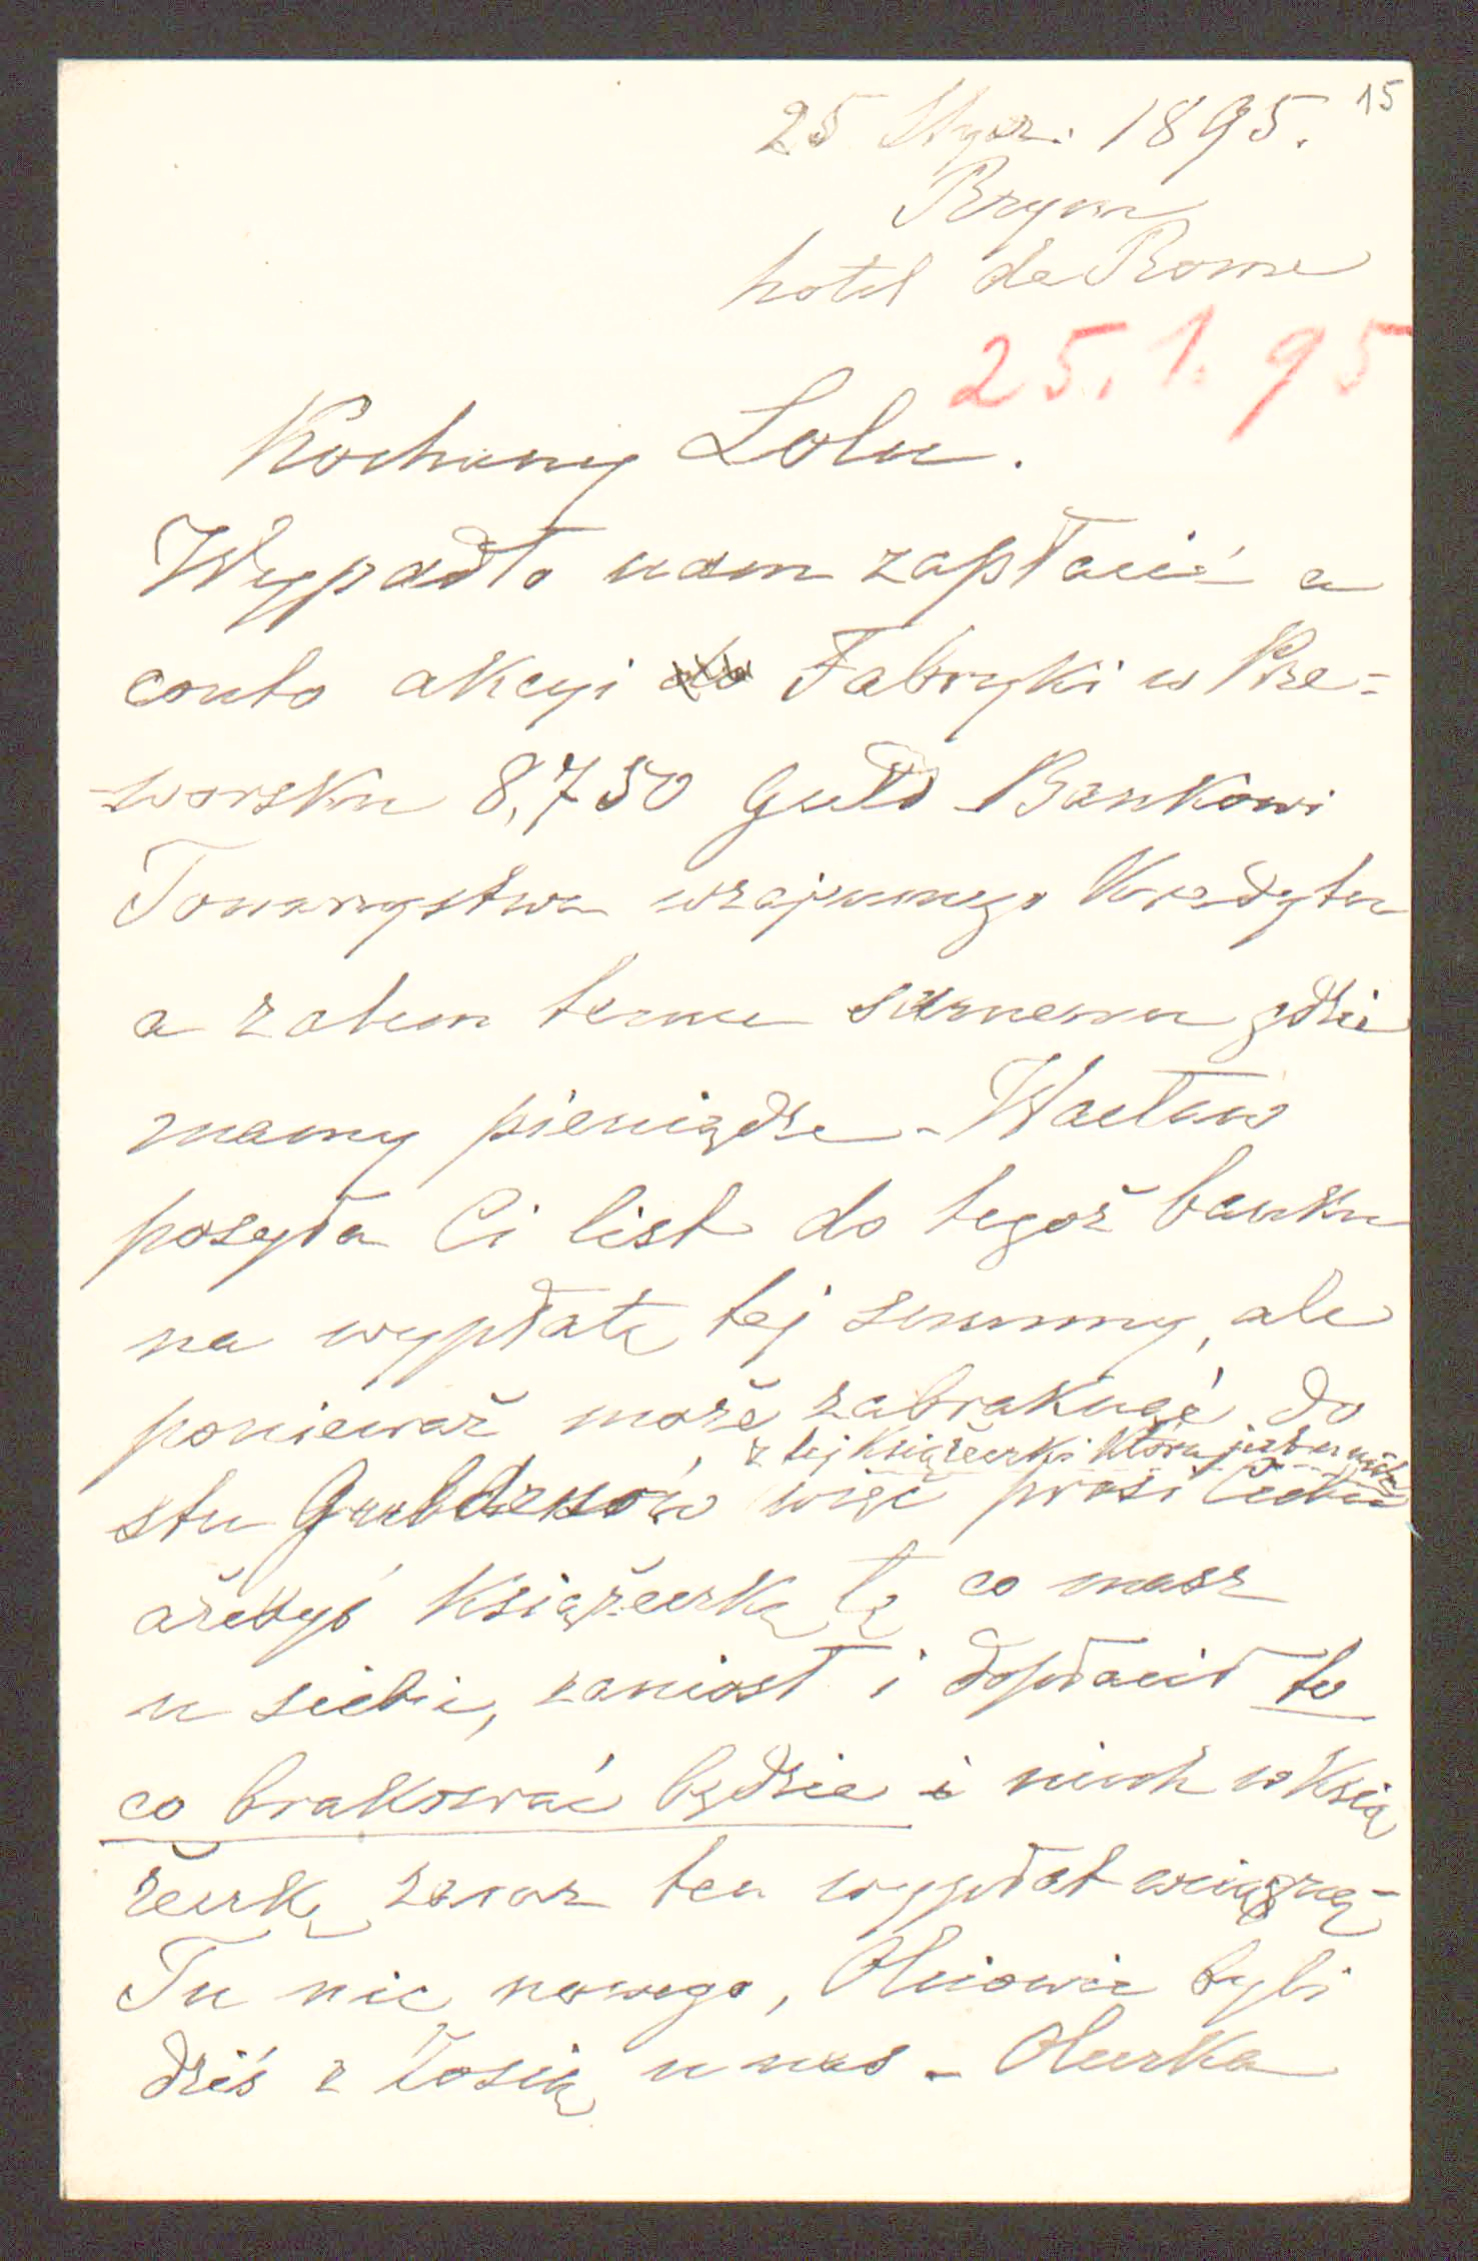 15
25 Stycz. 1895.
Rzym
hotel de Rome
25.1.95
Kochany Lolu.
Wypadło nam zapłacić a
conto akcyi Fabryki w Prze-
-worsku 8,750 Guld Bankowi
Towarzystwa wzajemnego Kredytu
a zatem temu samemu gdzie
mamy pieniądze - Wacław
posyła Ci list do tegoż banku
na wypłatę tej summy, ale
ponieważ może zabraknąć do
z tej książeczki która jest u nich
stu Guldenów więc prosi Ciebie
ażebyś książeczkę tę co masz
u siebie, zaniosł i dopłacił to
co brakować będzie i niech w Ksią
żeczkę zaraz ten wypłat wciągną -
Tu nic nowego, Olesiowie byli
dziś z Tosią u nas - Oleszka